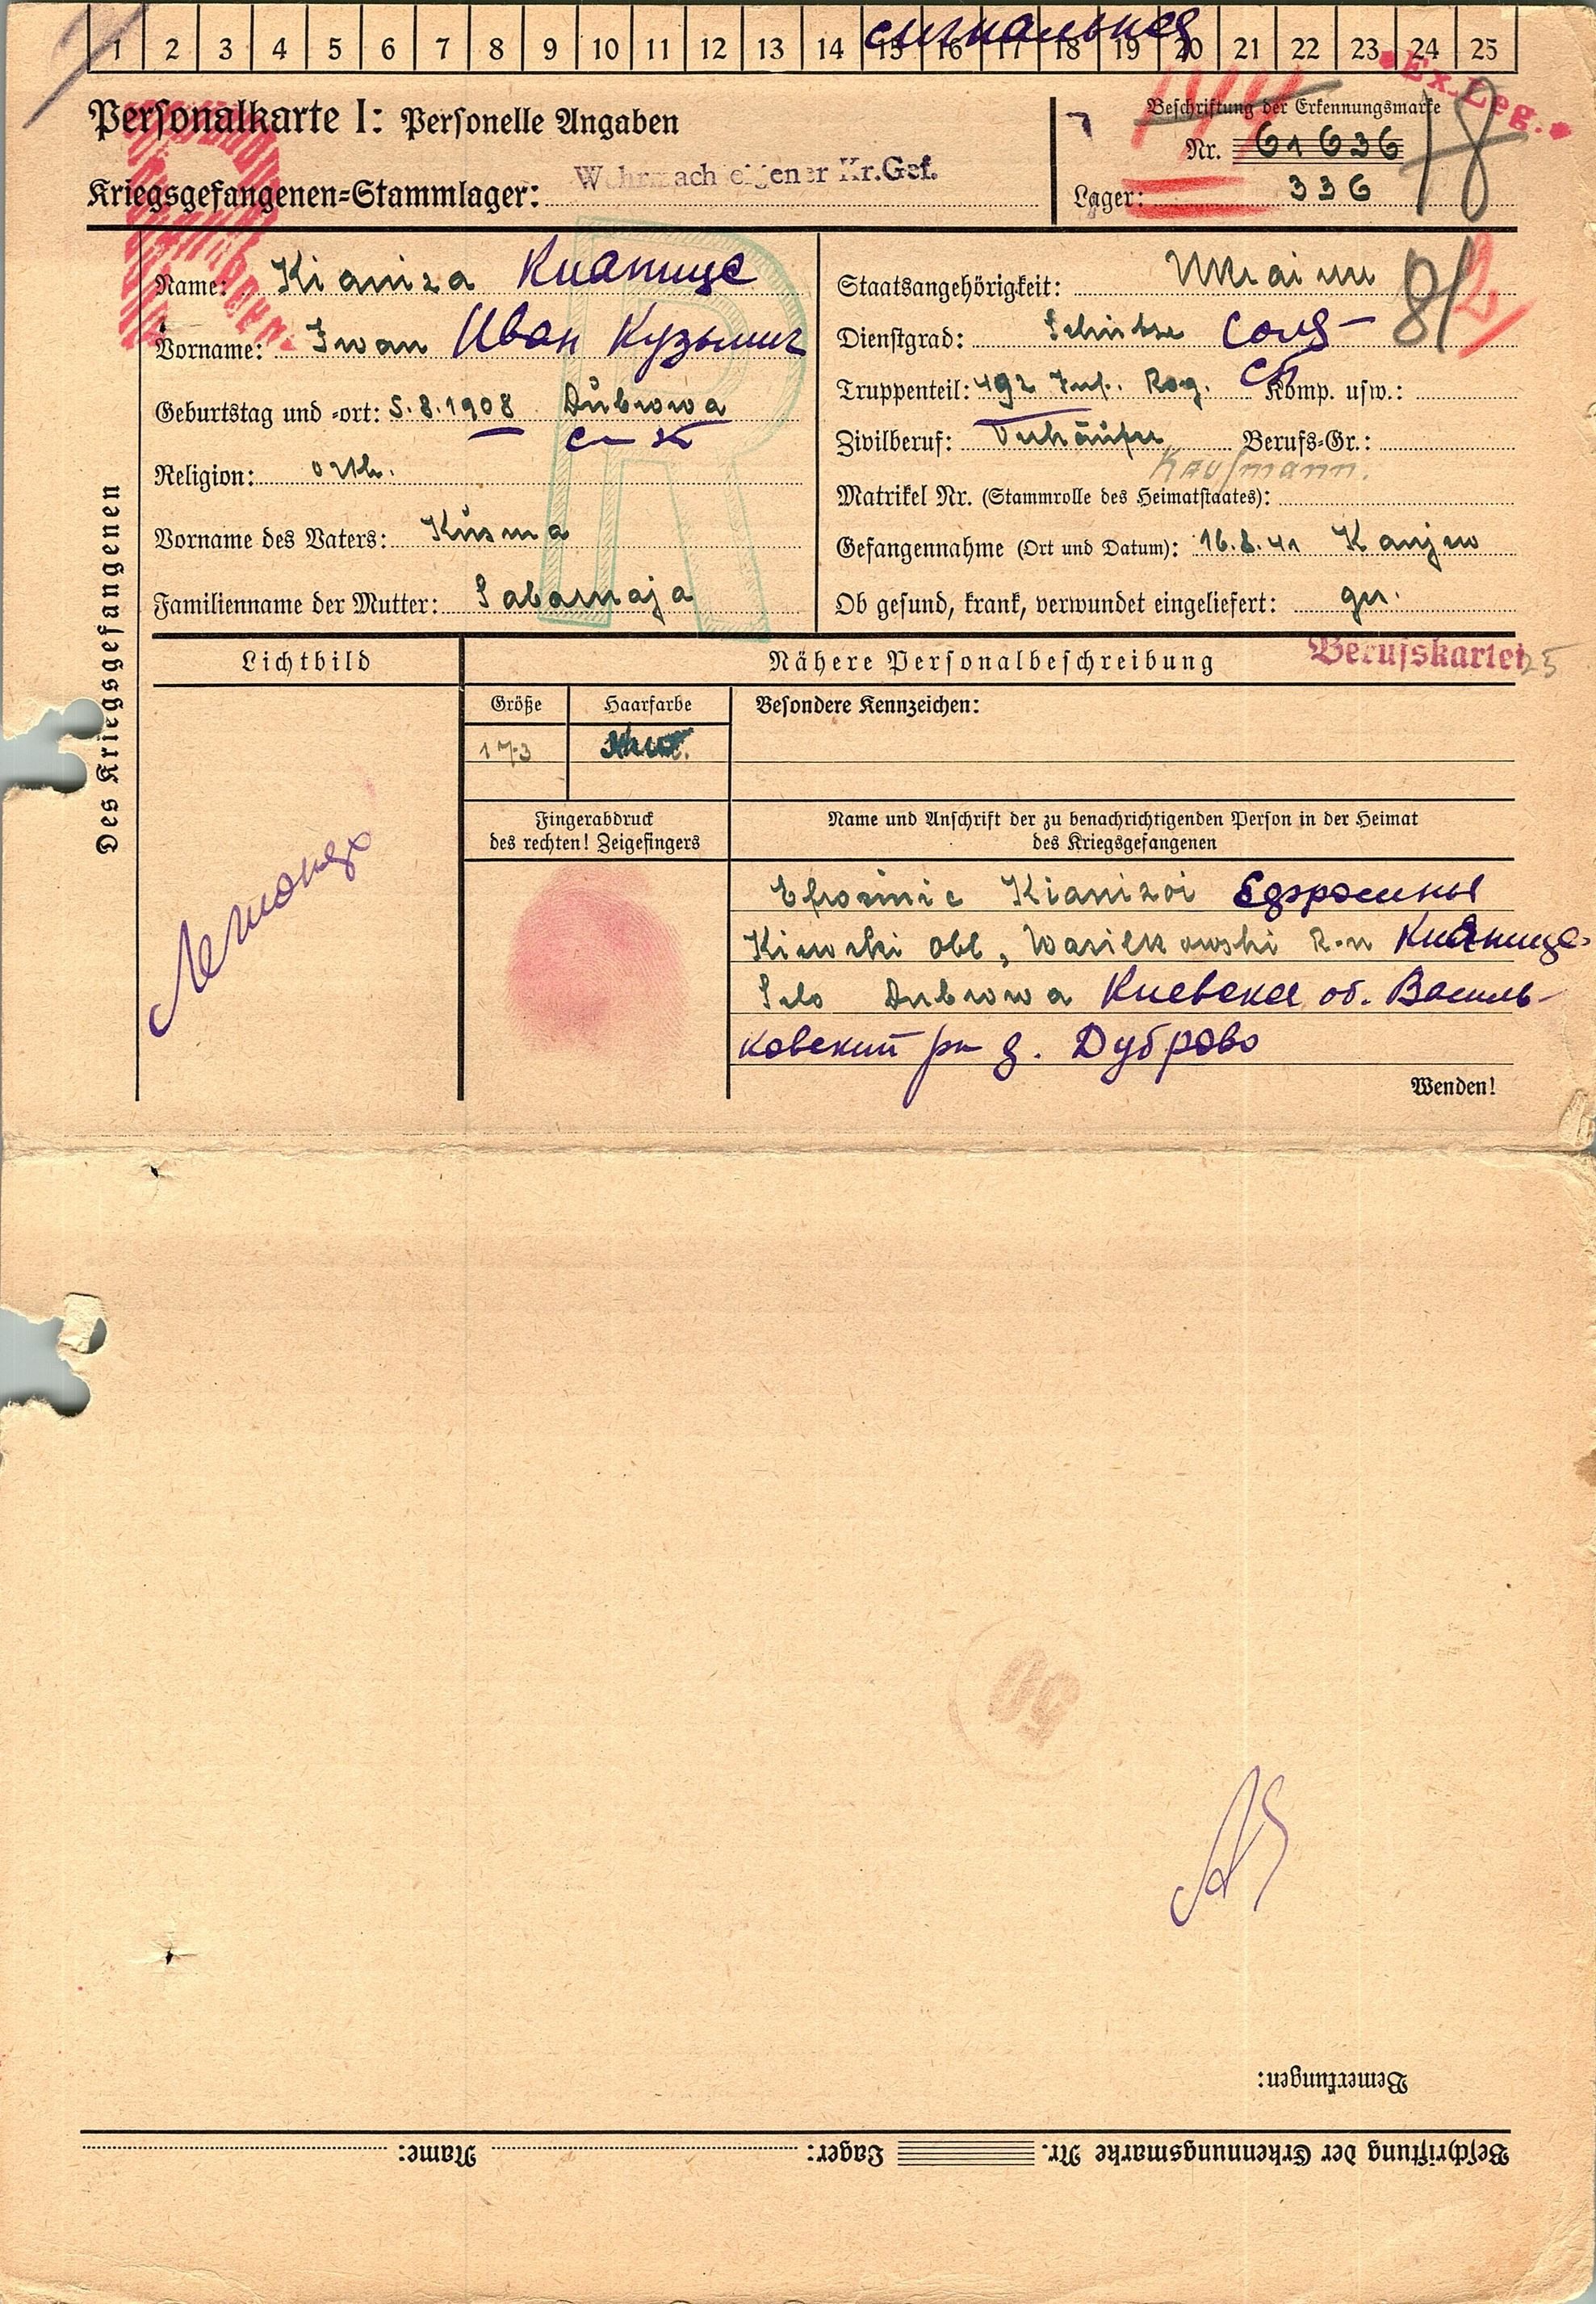 1 2 3 4 5 6 7 8 9 10 11 12 13 14 15 16 17 18 19 20 21 22 23 24 25
Ex. Leg.
Personalkarte I: Personelle Angaben
Beschriftung der Erkennungsmarke
Nr. 61636
18
Kriegsgefangenen=Stammlager: Wehrmachteigener Kr.Gef.
Lager: 336
Des Kriegsgefangenen
Name: Kianiza Кианице
Vorname: Iwan Иван Кузьмич
Geburtstag und =ort: 5.8.1908 Dubrowa
Religion: orth.
Vorname des Vaters: Kusma
Familienname der Mutter: Sabarnaja
Staatsangehörigkeit: Ukrainer
8/2
Dienstgrad: Schütze Солд-
Truppenteil: 492 Inf. Reg. Komp. usw.:
Zivilberuf: Verkäufer Berufs=Gr.:
Kaufmann.
Matrikel Nr. (Stammrolle des Heimatstaates):
Gefangennahme (Ort und Datum): 16.8.41 Kanjew
Ob gesund, krank, verwundet eingeliefert: ges.
Lichtbild
Nähere Personalbeschreibung
Berufskartei
25
Größe
Haarfarbe
Besondere Kennzeichen:
173
Fingerabdruck
des rechten! Zeigefingers
Name und Anschrift der zu benachrichtigenden Person in der Heimat
des Kriegsgefangenen
Efrosinie Kianizoi
Kiewski obl, Wasilkowski R-n Кианице-
Selo Dubrowa Киевская об. Василь-
ковский рн д. Дуброво
Wenden!
50
Bemerkungen:
Beschriftung der Erkennungsmarke Nr. Lager: Name: